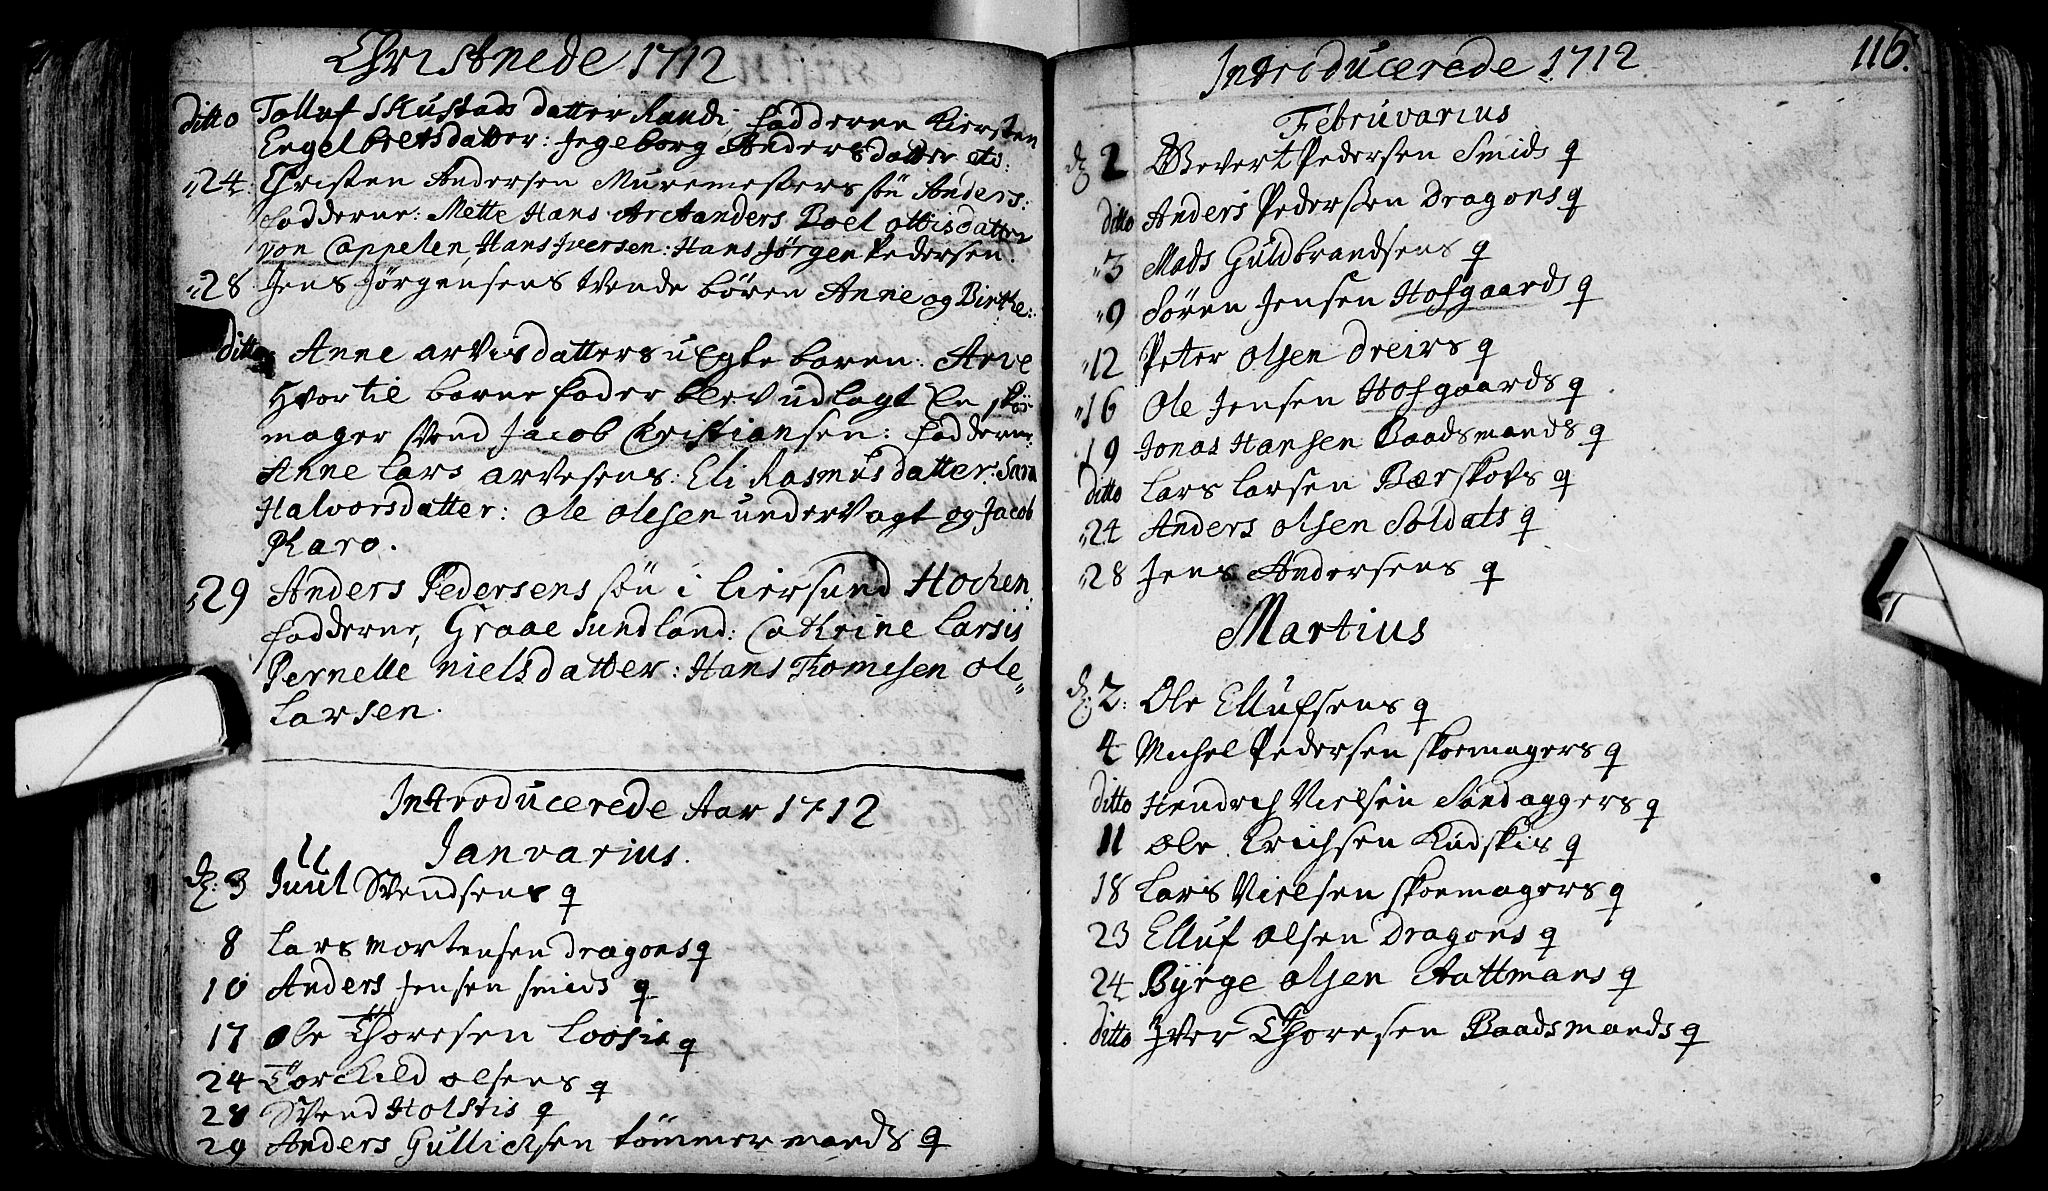 Christnede 1712
ditto Tolluf Skustads datter Randi fadderne Kiersten
Engelbretsdatter: Jngeborg Andersdatter etc:
"24. Christen Andersen Muremesters sön Anders:
fadderne: Mette Hans Arctanders Boel Ottisdatter
von Cappelen, Hans Jversen: Hans Jörgen Pedersen.
"28. Jens Jörgensens tvende bören Anne og Birthe:
ditto Anne Arvisdatters uegte baren: Arve
Hvortil barne fader blev udlagt En skoe
mager svend Jacob Christiansen: fadderne:
Anne Lars Arvesens: Eli Rasmusdatter: Sara
Halvorsdatter: Ole Olesen undervagt og Jacob
Pharo.
"29 Anders Pedersens sön i Liersund Hochen
fadderne, Graae Sundland: Cathrine Larsis
Pernelle Nielsdatter: Hans Thomesen Ole
Larsen.
Introducerede Aar 1712
Janvarius.
dz: 3 Juul Svendsens q
8 Lars Mortensen dragons q
10 Anders Jensen smids q
17 Ole Thoresen Loosis q
24 Torchild Olsens q
28 Svend Holstis q
29 Anders Gullichsen tömmermands q
Introducerede 1712
116.
Februvarius
dz 2 Evert Pedersen Smids q
ditto Anders Pedersen Dragons q
"3 Mads Guldbrandsens q
"9 Sören Jensen Hofgaards q
"12 Peter Olsen Dreirs q
"16 Ole Jensen Hofgaards q
19 Jonas Hansen Baadsmands q
ditto Lars Larsen Bærskovs q
"24 Anders Olsen Soldats q
"28 Jens Andersens q
Martius
dz 2: Ole Ellufsens q
4 Michel Pedersen skoemagers q
ditto Hendrich Nielsen Sandaggers q
11 Ole Erichsen Kudskis q
18 Lars Nielsen skoemagers q
23 Elluf Olsen Dragons q
24 Byrge Olsen Aattmans q
ditto Jver Thoresen Baadsmands q